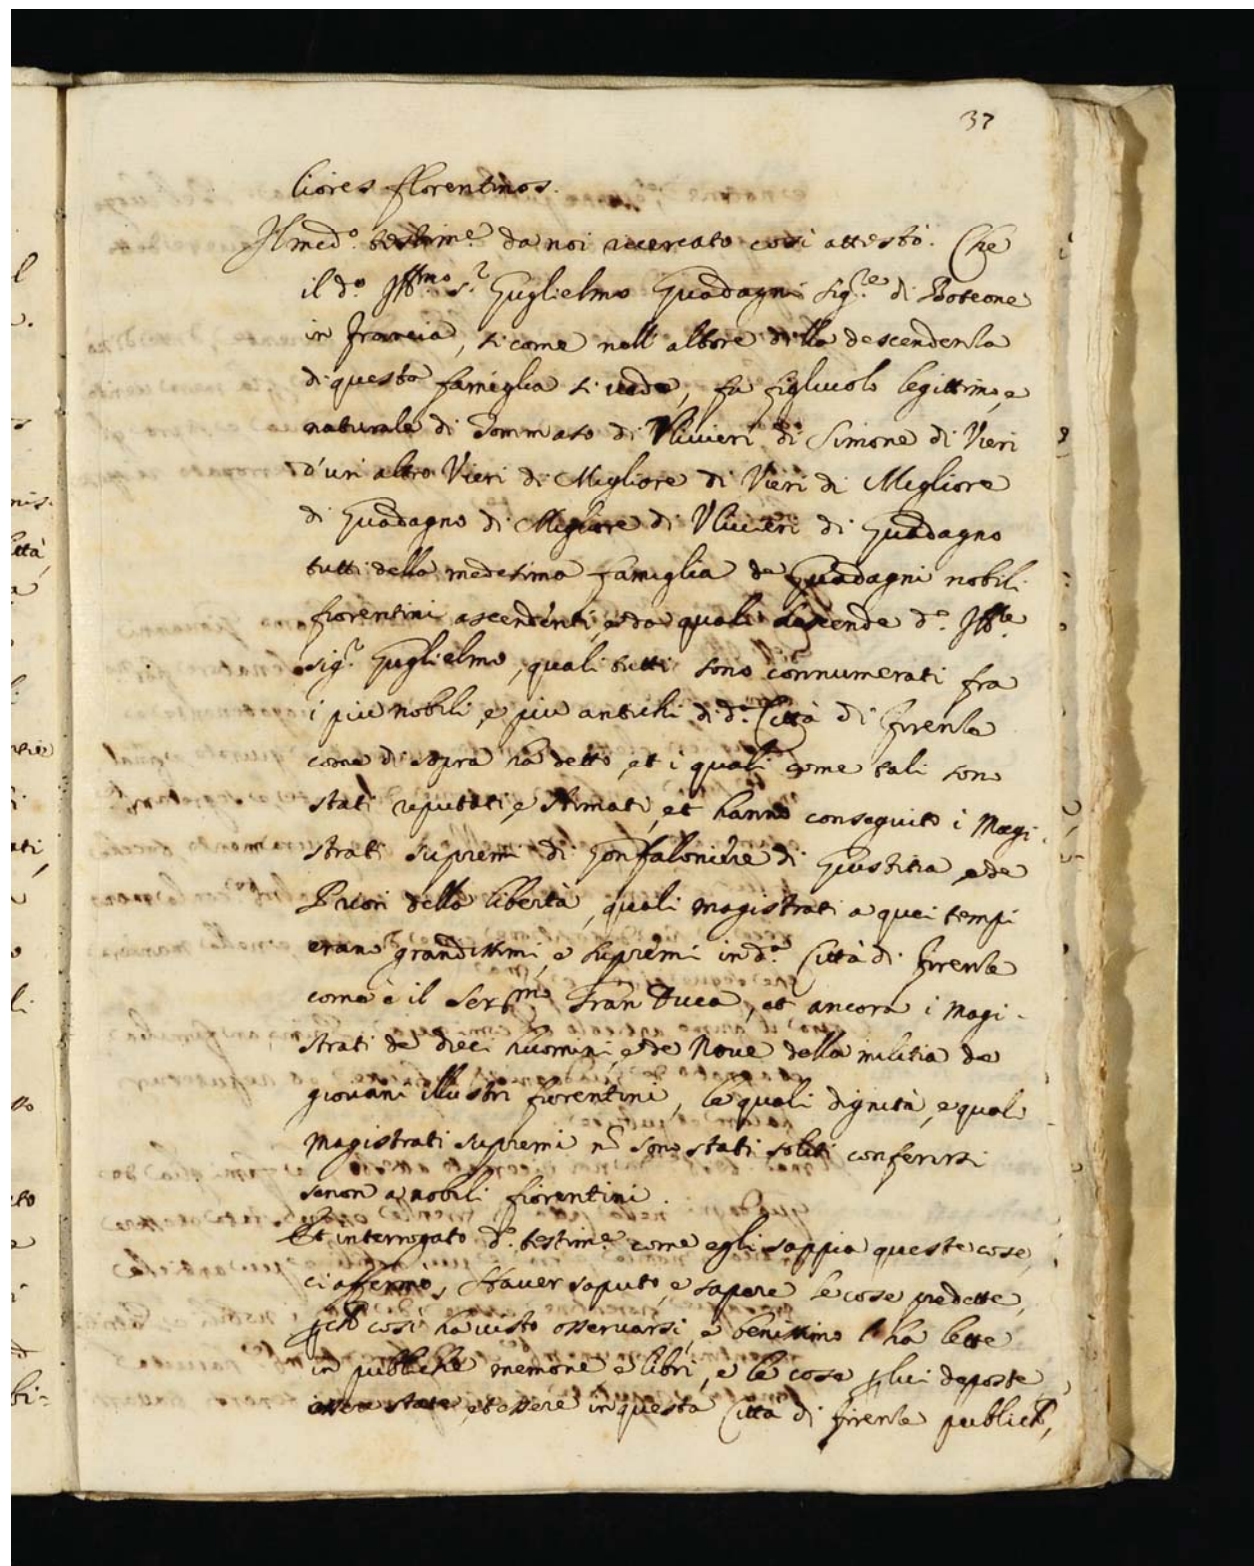 37
liores florentinos.
Il med.o testim.e da noi ricercato così attestò. Che
il d.o Ill.mo S.r Guglielmo Guadagni sig.re di Boteone
in francia, si come nell'albore della descendenza
di questa famiglia si vede, fu figliuolo legittimo, e
naturale di Tommaso di Vlivieri di Simone di Vieri
d'un altro Vieri di Migliore di Vieri di Migliore
di Guadagno di Migliore di Vlivieri di Guadagno
tutti della medesima famiglia de Guadagni nobili
fiorentini ascendenti, e da quali descende d.o Ill.re
sig.r Guglielmo, quali tutti sono connumerati fra
i più nobili, e più antichi di d.a Città di firenze
come di sopra ha detto, et i quali come tali sono
stati reputati, e stimati, et hanno conseguito i Magi-
strati supremi di Gonfaloniere di Giustitia, e de
Priori della libertà, quali magistrati a quei tempi
erano grandissimi, e supremi in d.a Città di firenze
come è il Ser.mo Gran Duca, et ancora i Magi-
strati de dieci huomini, e de Nove della militia de
giovani illustri fiorentini, le quali dignità, e quali
magistrati supremi n sono stati soliti conferirsi
senon a nobili fiorentini.
Et interrogato d.o testim.e come egli sappia queste cose,
ci affermò, Haver saputo, e sapere le cose predette,
pch così ha visto osservarsi, e benissimo l'ha lette
in pubbliche memorie, e libri, e le cose p lui deposte
essere state, et essere in questa Città di firenze public,